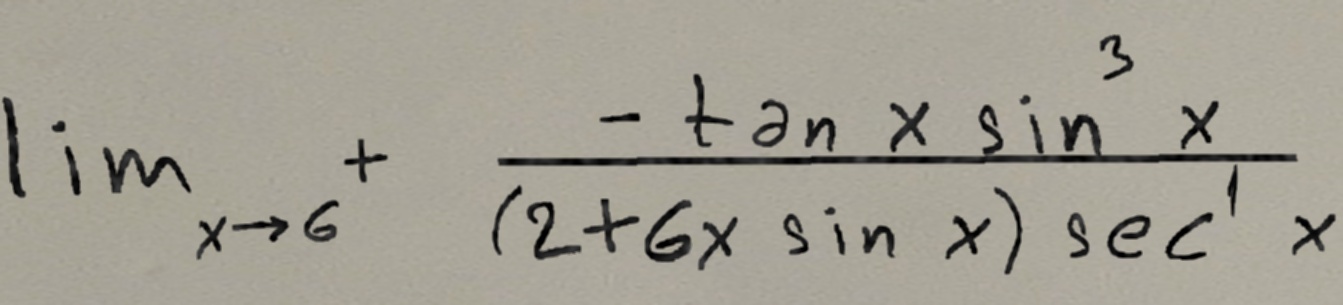 \lim_{x \to 6^+} \frac{-\tan x \sin^3 x}{(2+6x \sin x) \sec^1 x}